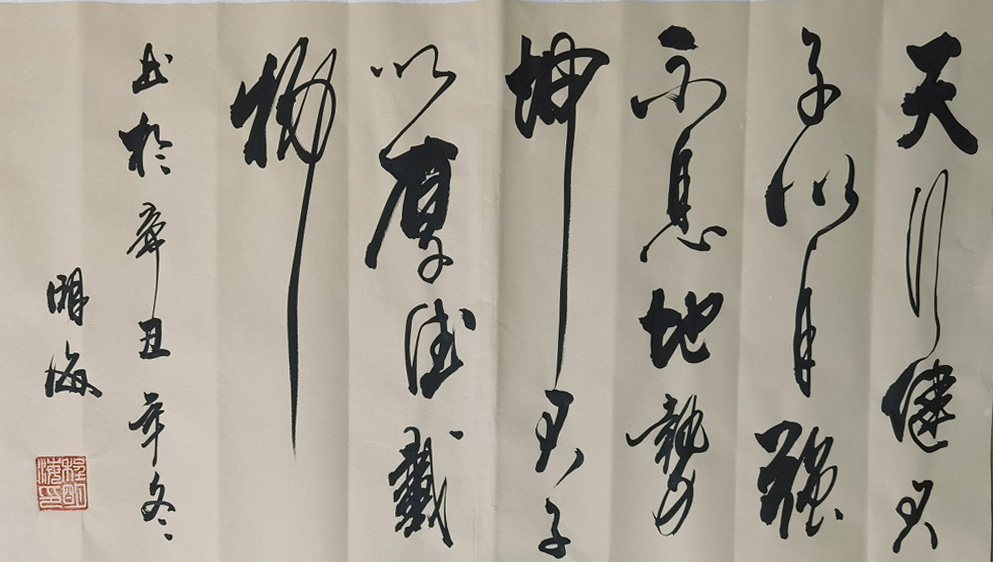 天行健君
子以自强
不息地势
坤君子
以厚德载
物
书于辛丑年冬
明海
程明海印